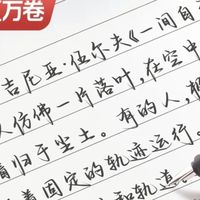 万卷
吉尼亚·伍尔夫《一间自
人仿佛一片落叶,在空中
着归于尘土。有的人,极
着固定的轨迹运行。
和轨道。